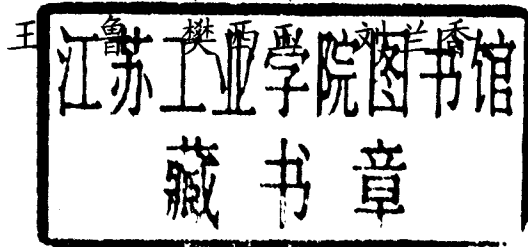 王 鲁 樊西爵 刘兰香
江苏工业学院图书馆
藏书章